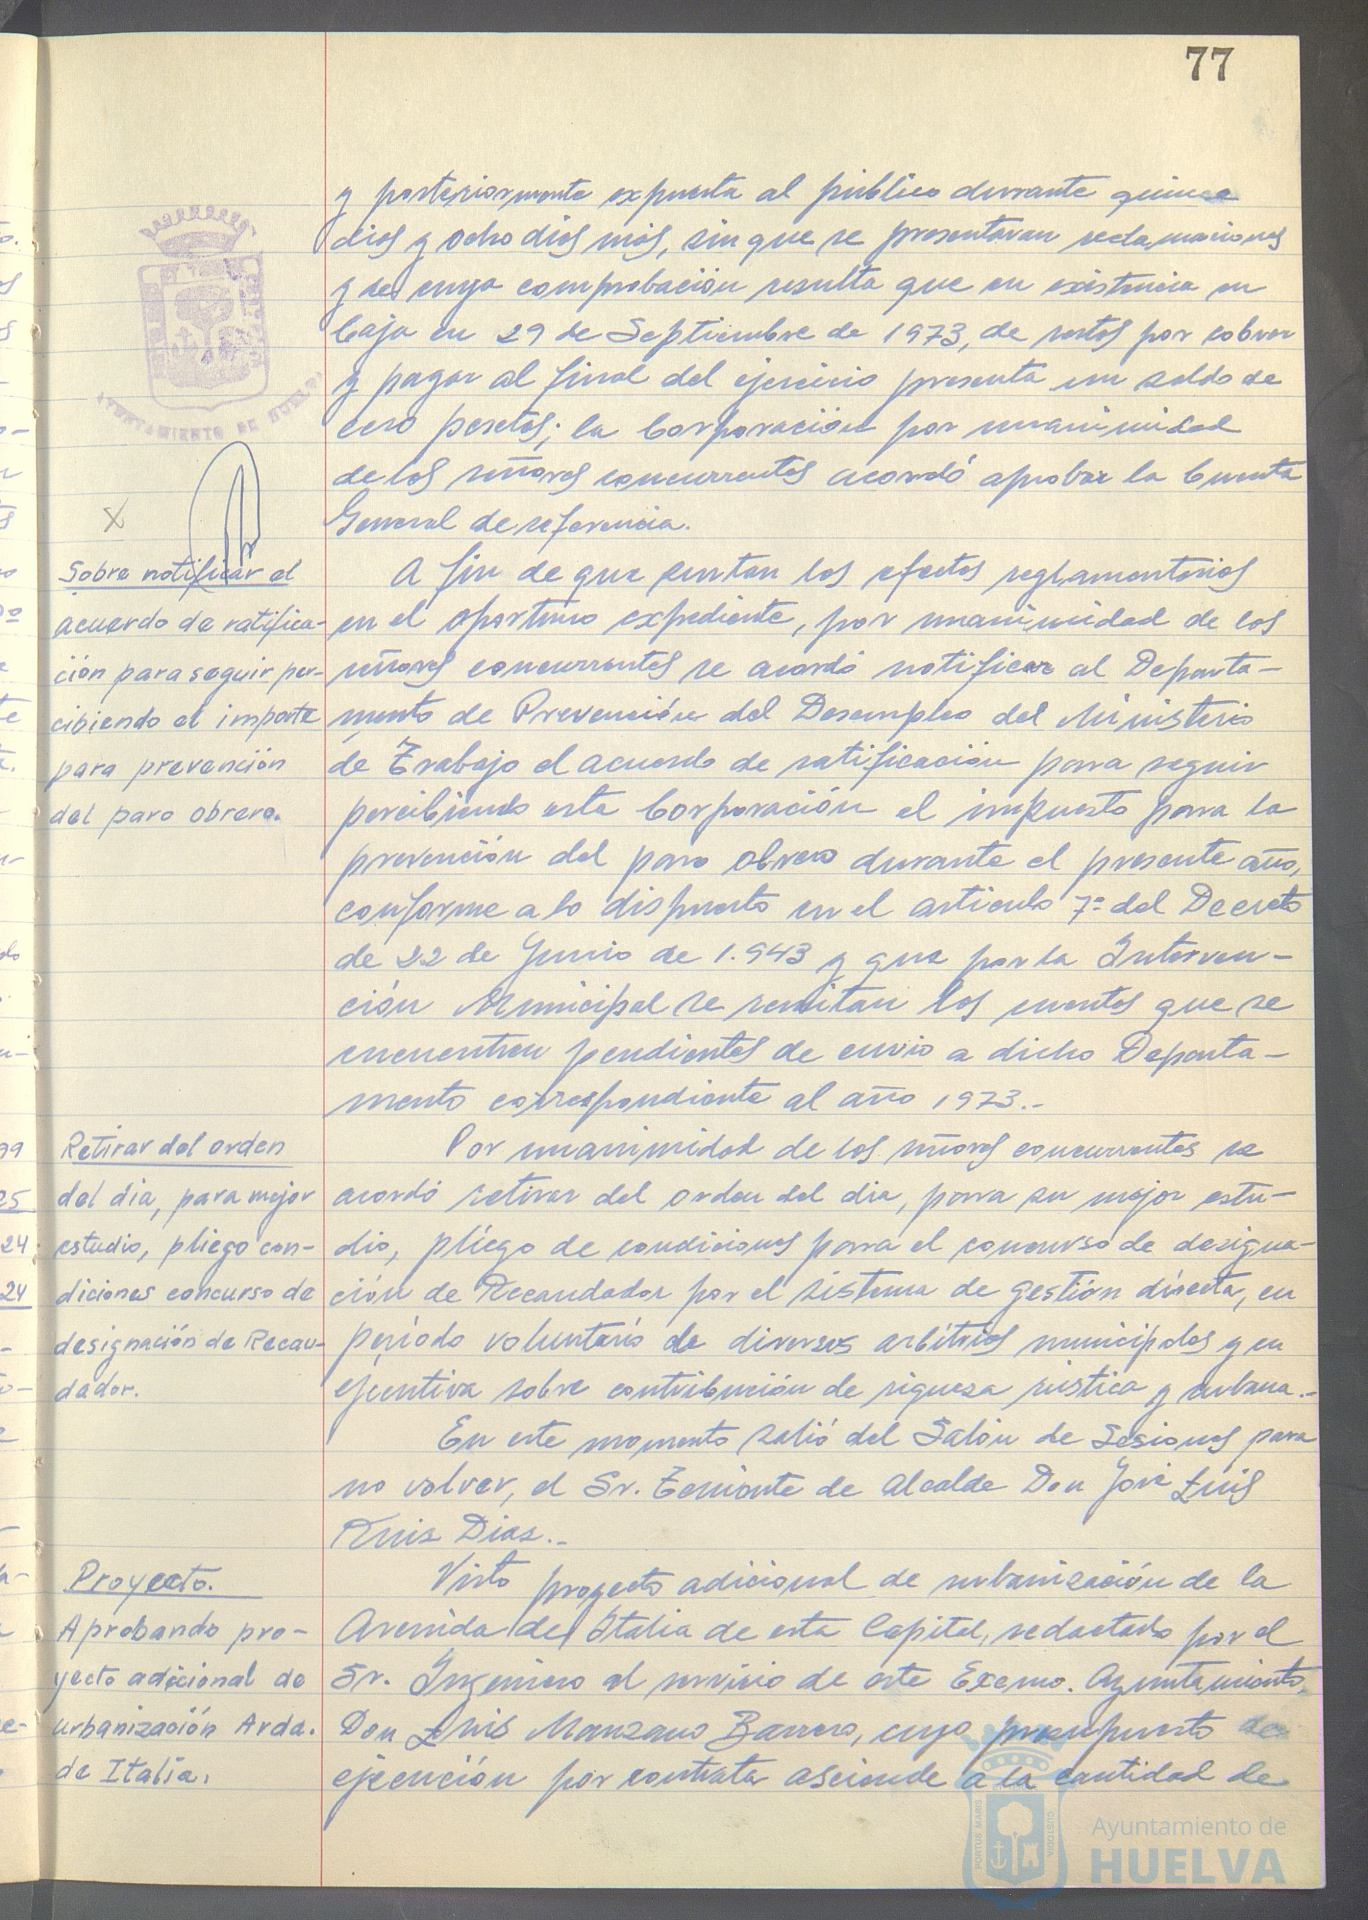 77
y posteriormente expuesta al público durante quince
dias y ocho dias más, sin que se presentaran reclamaciones
y de cuya comprobación resulta que en existencia en
Caja en 29 de Septiembre de 1973, de restos por cobrar
y pagar al final del ejercicio presenta un saldo de
cero pesetas; la Corporación por unanimidad
de los señores concurrentes acordó aprobar la Cuenta
General de referencia.
AYUNTAMIENTO DE HUELVA
X
Sobre notificar el
acuerdo de ratifica-
ción para seguir per-
cibiendo el importe
para prevención
del paro obrero.
A fin de que surtan los efectos reglamentarios
en el oportuno expediente, por unanimidad de los
señores concurrentes se acordó notificar al Departa-
mento de Prevención del Desempleo del Ministerio
de Trabajo el acuerdo de ratificación para seguir
percibiendo esta Corporación el impuesto para la
prevención del paro obrero durante el presente año,
conforme a lo dispuesto en el articulo 7º del Decreto
de 22 de Junio de 1.943 y que por la Interven-
ción Municipal se remitan las cuentas que se
encuentren pendientes de envio a dicho Departa-
mento correspondiente al año 1973.-
Retirar del orden
del dia, para mejor
estudio, pliego con-
diciones concurso de
designación de Recau-
dador.
Por unanimidad de los señores concurrentes se
acordó retirar del orden del dia, para su mejor estu-
dio, pliego de condiciones para el concurso de designa-
ción de Recaudador por el sistema de gestión directa, en
período voluntario de diversos arbitrios municipales y en
ejecutiva sobre contribución de riqueza rústica y urbana.-
En este momento salió del Salón de Sesiones para
no volver, el Sr. Teniente de Alcalde Don José Luis
Ruiz Diaz.-
Proyecto.
Aprobando pro-
yecto adicional de
urbanización Avda.
de Italia.
Visto proyecto adicional de urbanización de la
Avenida de Italia de esta Capital, redactado por el
Sr. Ingeniero al servicio de este Excmo. Ayuntamiento,
Don Luis Manzano Barrero, cuyo presupuesto de
ejecución por contrata asciende a la cantidad de
PORTUS MARIS
CUSTODIA
Ayuntamiento de
HUELVA